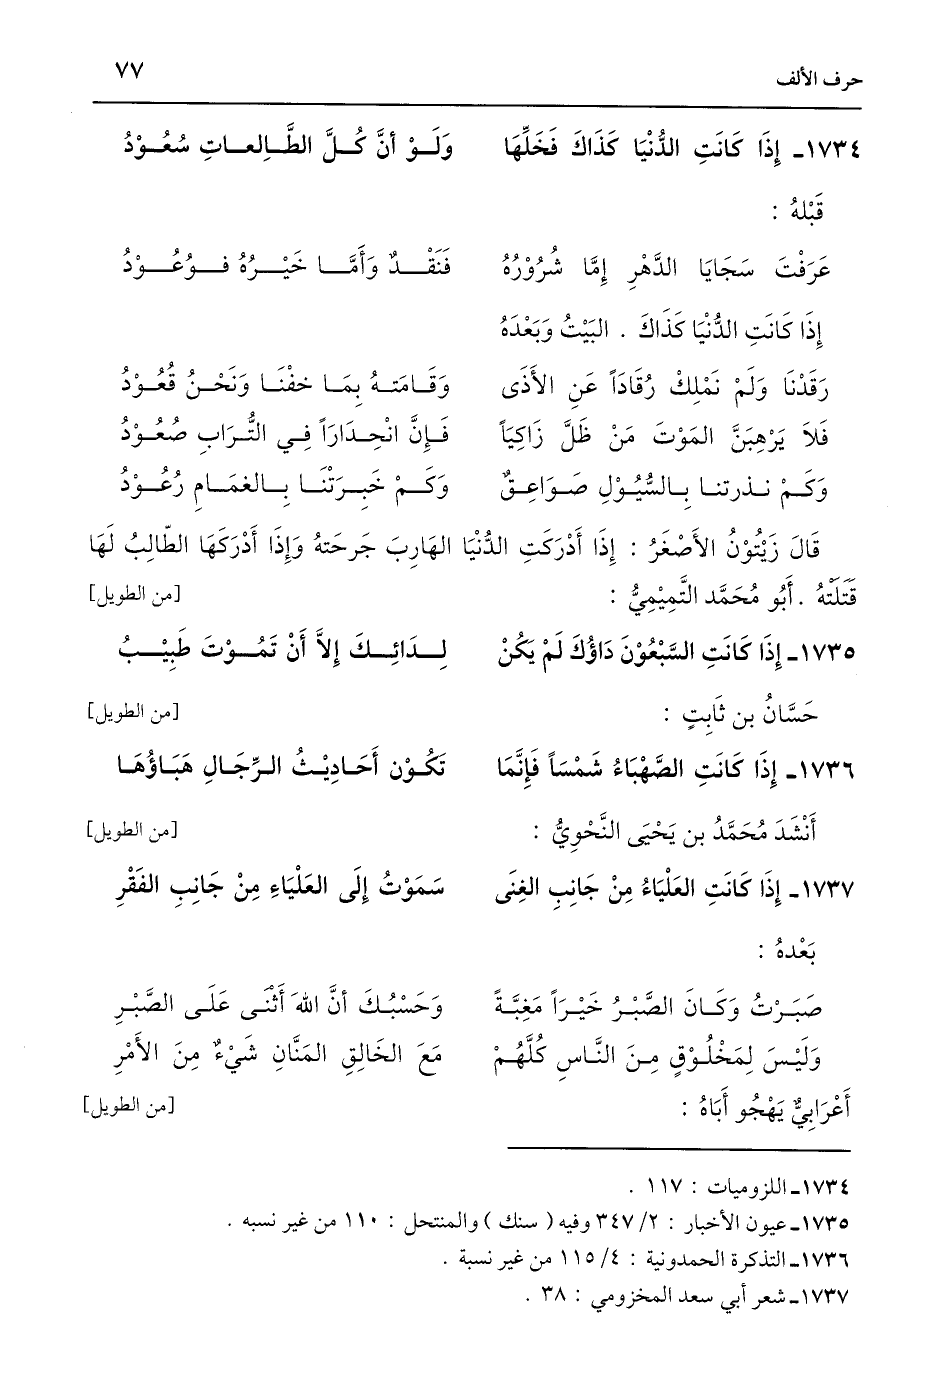 حرف الألف ٧٧
١٧٣٤ـ إِذَا كَانَتِ الدُّنْيَا كَذَاكَ فَخَلِّهَا وَلَـوْ أنَّ كُـلَّ الطَّـالِعـاتِ سُعُـوْدُ
قَبْلهُ :
عَرَفْتَ سَجَايَا الدَّهْرِ إمَّا شُرُوْرُهُ فَنَقْـدٌ وَأَمَّـا خَيْـرُهُ فـوُعُـوْدُ
إِذَا كَانَتِ الدُّنْيَا كَذَاكَ . البَيْتُ وَبَعْدَهُ
رَقَدْنَا وَلَمْ نَمْلِكْ رُقَادَاً عَنِ الأَذَى وَقَـامَتـهُ بِمَـا خفْنَـا وَنَحْـنُ قُعُـوْدُ
فَلاَ يَرْهِبَنَّ المَوْتَ مَنْ ظَلَّ زَاكِيَاً فَـإِنَّ انْحِـدَارَاً فِـي التُّـرَابِ صُعُـوْدُ
وَكَـمْ نـذرتنـا بِـالسُّيُـوْلِ صَـوَاعِـقٌ وَكَـمْ خَبِـرَتْنَـا بِـالغَمَـامِ رُعُـوْدُ
قَالَ زَيْتُوْنُ الأَصْغَرُ : إِذَا أَدْرَكَتِ الدُّنْيَا الهَارِبَ جَرحَتهُ وَإِذَا أَدْرَكَهَا الطَّالِبُ لَهَا
قَتَلَتْهُ . أَبُو مُحَمَّد التَّمِيْمِيُّ : [من الطويل]
١٧٣٥ـ إِذَا كَانَتِ السَّبْعُوْنَ دَاؤُكَ لَمْ يَكُنْ لِـدَائِـكَ إلاَّ أَنْ تَمُـوْتَ طَبِيْـبُ
حَسَّانُ بن ثَابِتٍ : [من الطويل]
١٧٣٦ـ إِذَا كَانَتِ الصَّهْبَاءُ شَمْسَاً فَإِنَّمَا تَكُـوْن أَحَـادِيْـثُ الـرِّجَـالِ هَبَـاؤُهَـا
أَنْشَدَ مُحَمَّدُ بن يَحْيَى النَّحْوِيُّ : [من الطويل]
١٧٣٧ـ إِذَا كَانَتِ العَلْيَاءُ مِنْ جَانِبِ الغِنَى سَمَوْتُ إِلَى العَلْيَاءِ مِنْ جَانِبِ الفَقْرِ
بَعْدهُ :
صَبَـرْتُ وَكَـانَ الصَّبْـرُ خَيْـرَاً مَغِبَّـةً وَحَسْبُـكَ أنَّ اللهَ أَثْنَـى عَلَـى الصَّبْـرِ
وَلَيْسَ لِمَخْلُـوْقٍ مِـنَ النَّـاسِ كُلَّهُـمْ مَعَ الخَالِقِ المَنَّانِ شَيْءٌ مِنَ الأَمْرِ
أَعْرَابِيٌّ يَهْجُو أَبَاهُ : [من الطويل]
١٧٣٤ـ اللزوميات : ١١٧ .
١٧٣٥ـ عيون الأخبار : ٢/ ٣٤٧ وفيه ( سنك ) والمنتحل : ١١٠ من غير نسبه .
١٧٣٦ـ التذكرة الحمدونية : ٤/ ١١٥ من غير نسبة .
١٧٣٧ـ شعر أبي سعد المخزومي : ٣٨ .